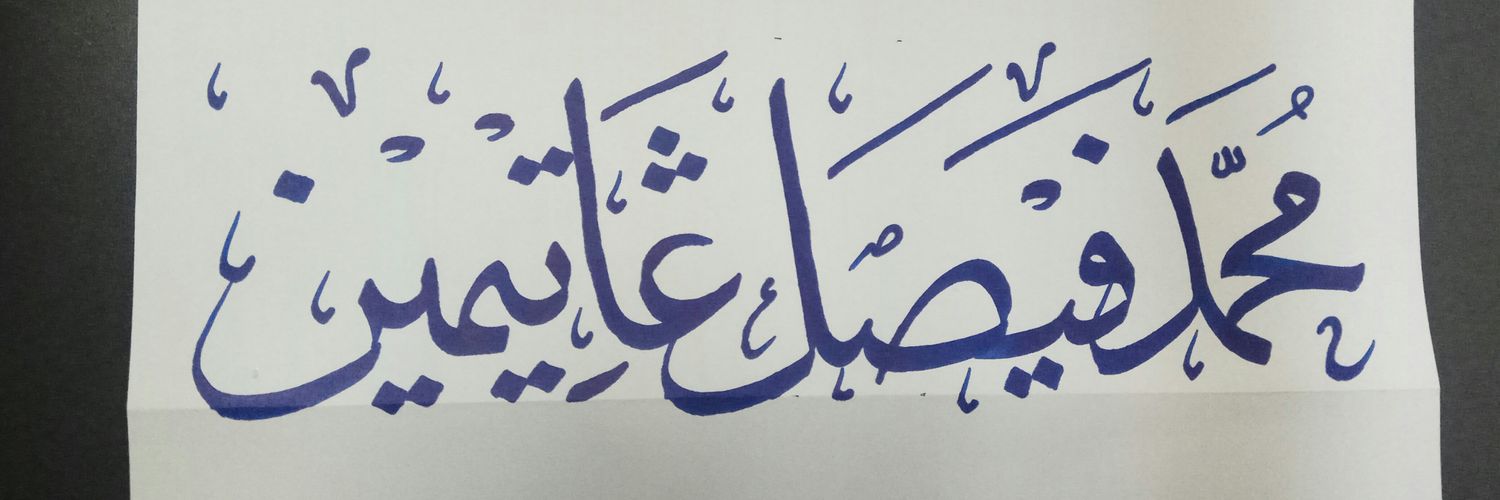 مُحمَّد فَيْصَل ڠَاتِيْميْن